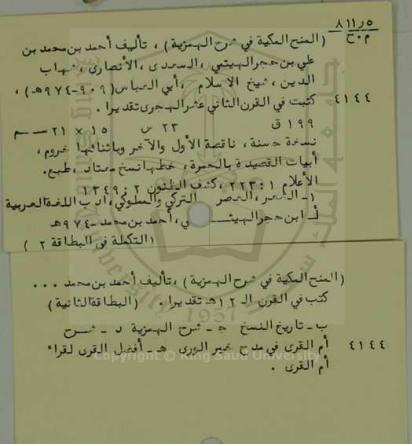 ٨١١٫٥
م . ح
(المنح المكية في شرح الهمزية) ، تأليف أحمد بن محمد بن
علي بن حجر الهيتمي ، السعدي ، الأنصاري ، شهاب
الدين ، شيخ الاسلام ، أبي العباس (٩٠٩ - ٩٧٤هـ) ،
٤١٤٤
كتبت في القرن الثاني عشر الهجري تقديرا .
١٩٩ ق ٢٣ س ١٥ × ٢١ سم
نسخة حسنة ، ناقصة الأول والآخر وباثنائها خروم ،
أبيات القصيدة بالحمرة ، خطها نسخ معتاد ، طبع .
الأعلام ١ : ٢٢٣ ، كشف الظنون ٢ : ١٣٤٩
١- الشعر ، العصر التركي والمملوكي ، أدب اللغة العربية
أ- ابن حجر الهيتمي ، أحمد بن محمد - ٩٧٤هـ
(التكملة في البطاقة ٢)
(المنح المكية في شرح الهمزية) ، تأليف أحمد بن محمد ...
كتب في القرن الـ ١٢هـ تقديرا . (البطاقة الثانية)
ب - تاريخ النسخ ج - شرح الهمزية د - شرح
٤١٤٤
أم القرى في مدح خير الورى هـ - أفضل القرى لقراء
أم القرى .
Copyright © King Saud University
1957